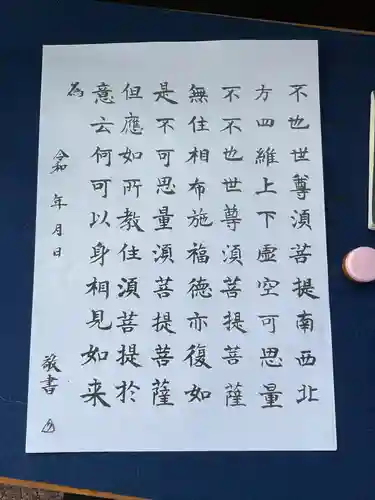 不也世尊須菩提南西北
方四維上下虚空可思量
不不也世尊須菩提菩薩
無住相布施福徳亦復如
是不可思量須菩提菩薩
但應如所教住須菩提於
意云何可以身相見如来
為
令和 年 月 日
敬書